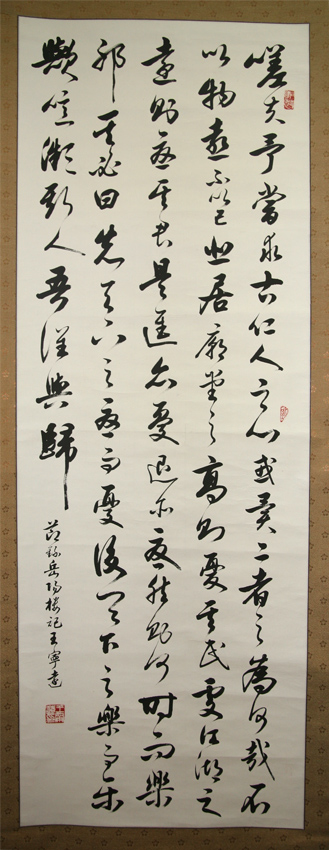 嗟夫予嘗求古仁人之心或異二者之為何哉不
以物喜不以己悲居廟堂之高則憂其民處江湖之
遠則憂其君是進亦憂退亦憂然則何時而樂
耶其必曰先天下之憂而憂後天下之樂而樂
歟噫微斯人吾誰與歸
節錄岳陽樓記王寧書